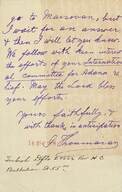 go to Marsovan, but
I wait for an answer,
& then I will let you know.
We follow with keen interest
the efforts of your International
committee for Adana
Rep. May the Lord bless
your efforts.
Yours faithfully, &
with thanks in anticipation